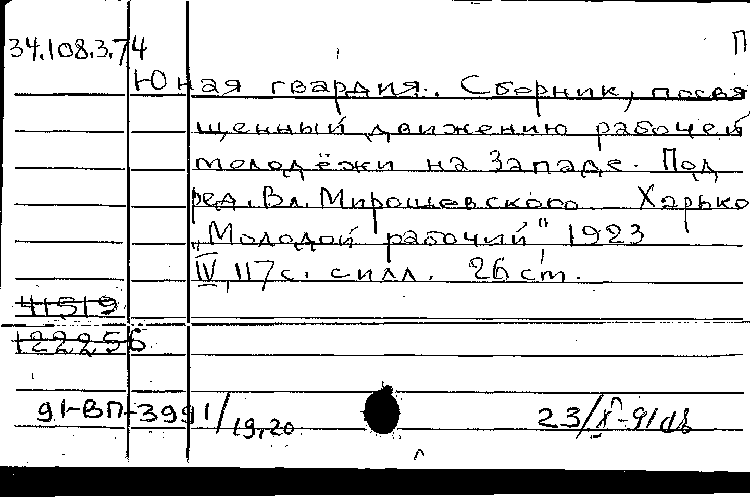 34.108.3.74 П
Юная гвардия. Сборник, посвя
щенный движению рабочей
молодёжи на Западе. Под
ред. Вл. Мирошевского Харько
„Молодой рабочий" 1923
IV, 117 с. с илл. 26 cm.
41519
122256
91-ВП-3991/19,20 23/X-91